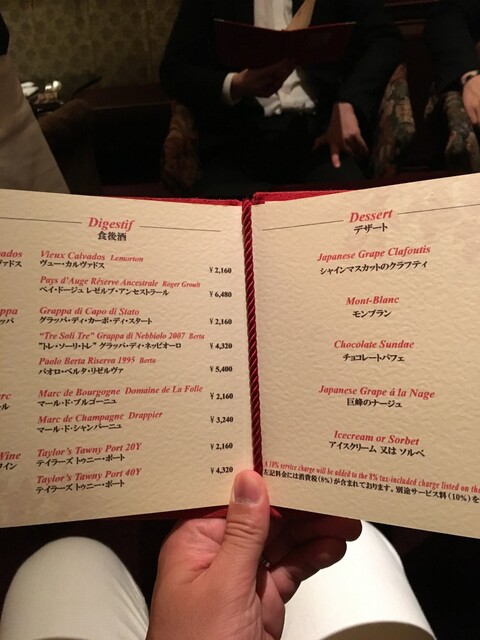 Digestif
食後酒
Vieux Calvados Lemorton
ヴュー・カルヴァドス
¥ 2,160
Pays d'Auge Réserve Ancestrale Roger Groult
ペイ・ドージュ レゼルブ・アンセストラール
¥ 6,480
Grappa di Capo di Stato
グラッパ・ディ・カーポ・ディ・スタート
¥ 2,160
"Tre Soli Tre" Grappa di Nebbiolo 2007 Berta
"トレ・ソーリ・トレ" グラッパ・ディ・ネッビオーロ
¥ 4,320
Paolo Berta Riserva 1995 Berta
パオロ・ベルタ・リゼルヴァ
¥ 5,400
Marc de Bourgogne Domaine de La Folie
マール・ド・ブルゴーニュ
¥ 2,160
Marc de Champagne Drappier
マール・ド・シャンパーニュ
¥ 3,240
Taylor's Tawny Port 20Y
テイラーズ トゥニー・ポート
¥ 2,160
Taylor's Tawny Port 40Y
テイラーズ トゥニー・ポート
¥ 4,320
Dessert
デザート
Japanese Grape Clafoutis
シャインマスカットのクラフティ
Mont-Blanc
モンブラン
Chocolate Sundae
チョコレートパフェ
Japanese Grape á la Nage
巨峰のナージュ
Icecream or Sorbet
アイスクリーム 又は ソルベ
A 10% service charge will be added to the 8% tax-included charge listed on the
左記料金には消費税(8%)が含まれております。別途サービス料(10%)を